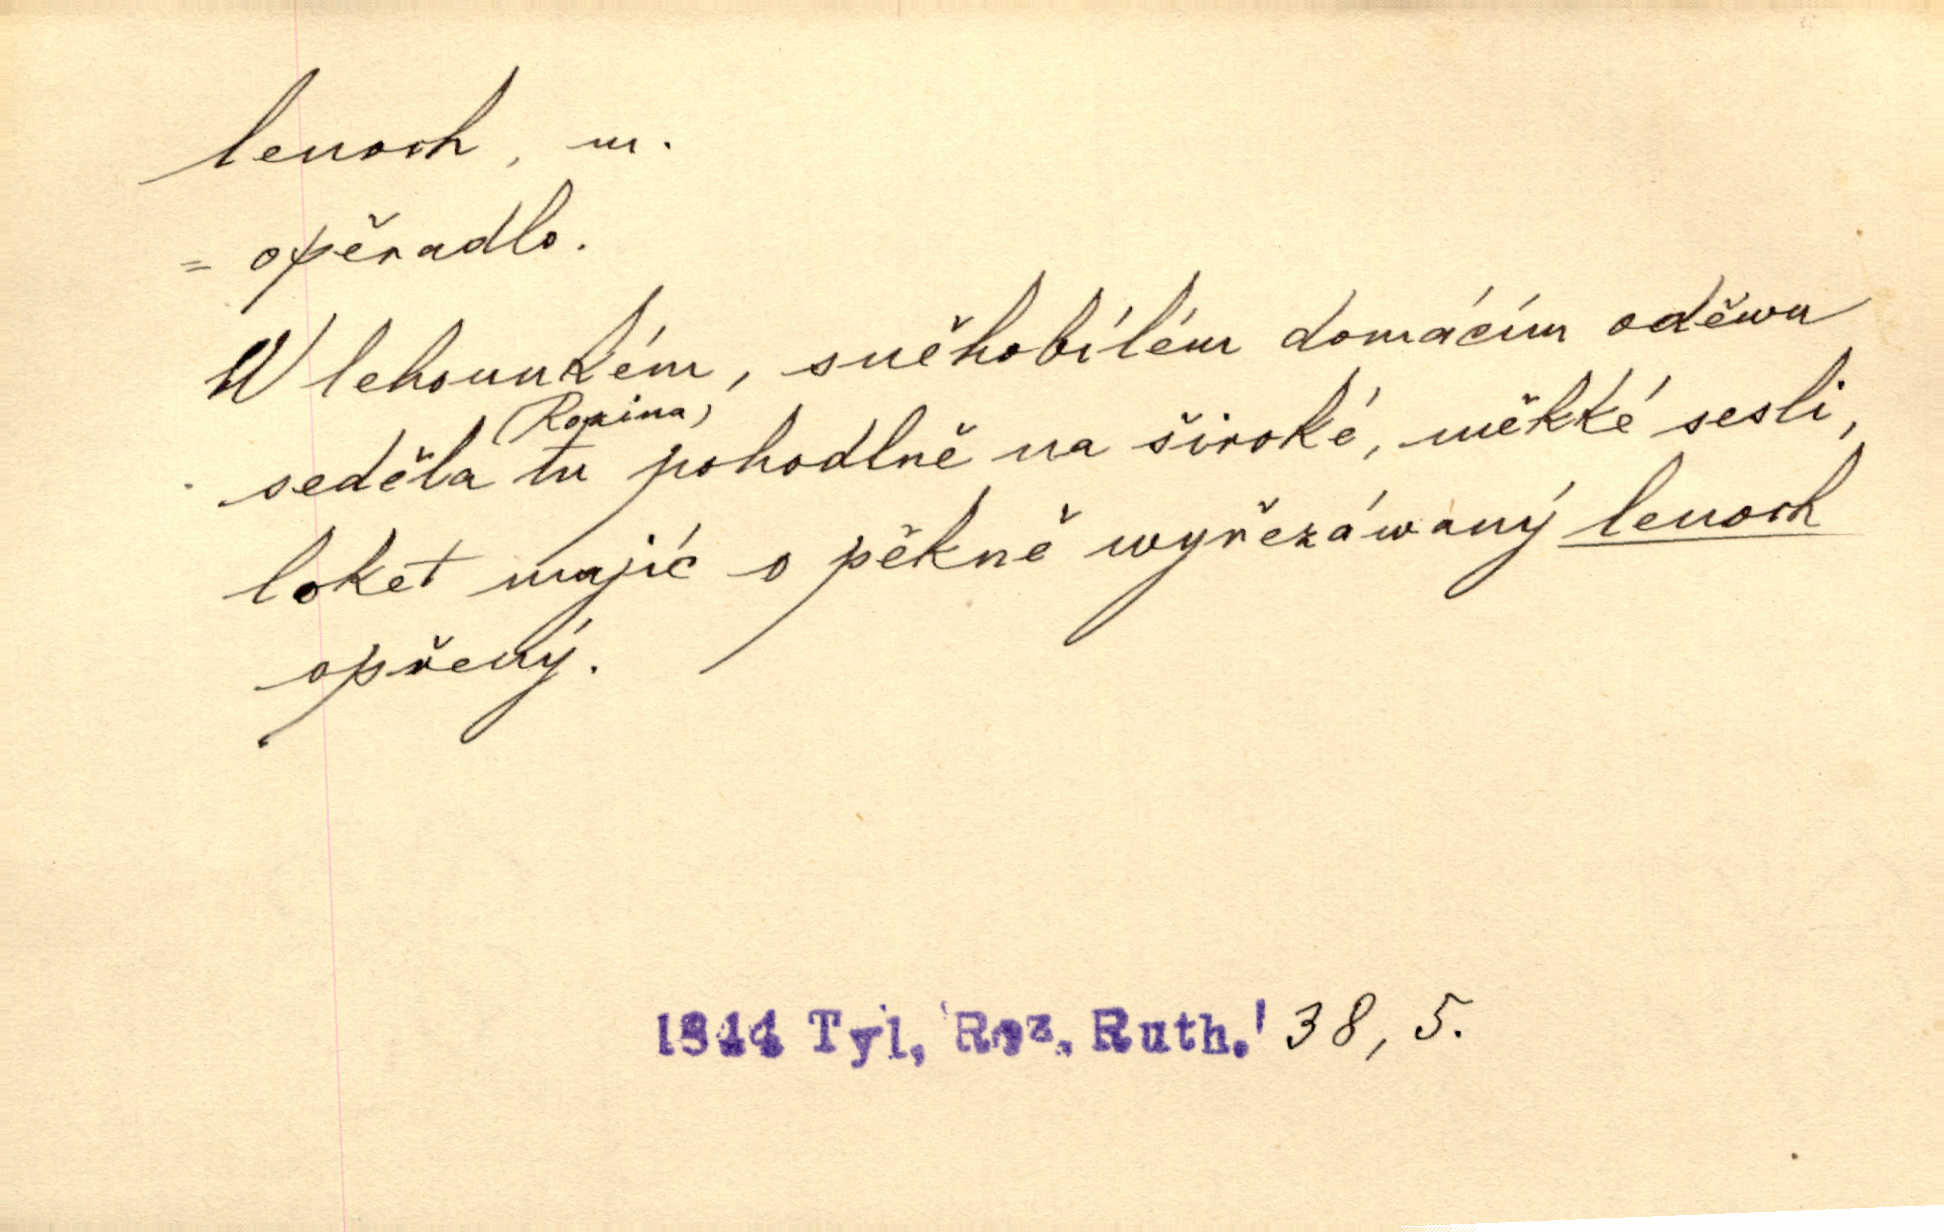 lenoch, m.
= opěradlo.
W lehounkém, sněhobílém domácím oděwu
(Rozina)
seděla tu pohodlně na široké, měkké sesli,
loket majíc o pěkně wyřezáwaný lenoch
opřený.
1844 Tyl, Roz. Ruth. 38, 5.